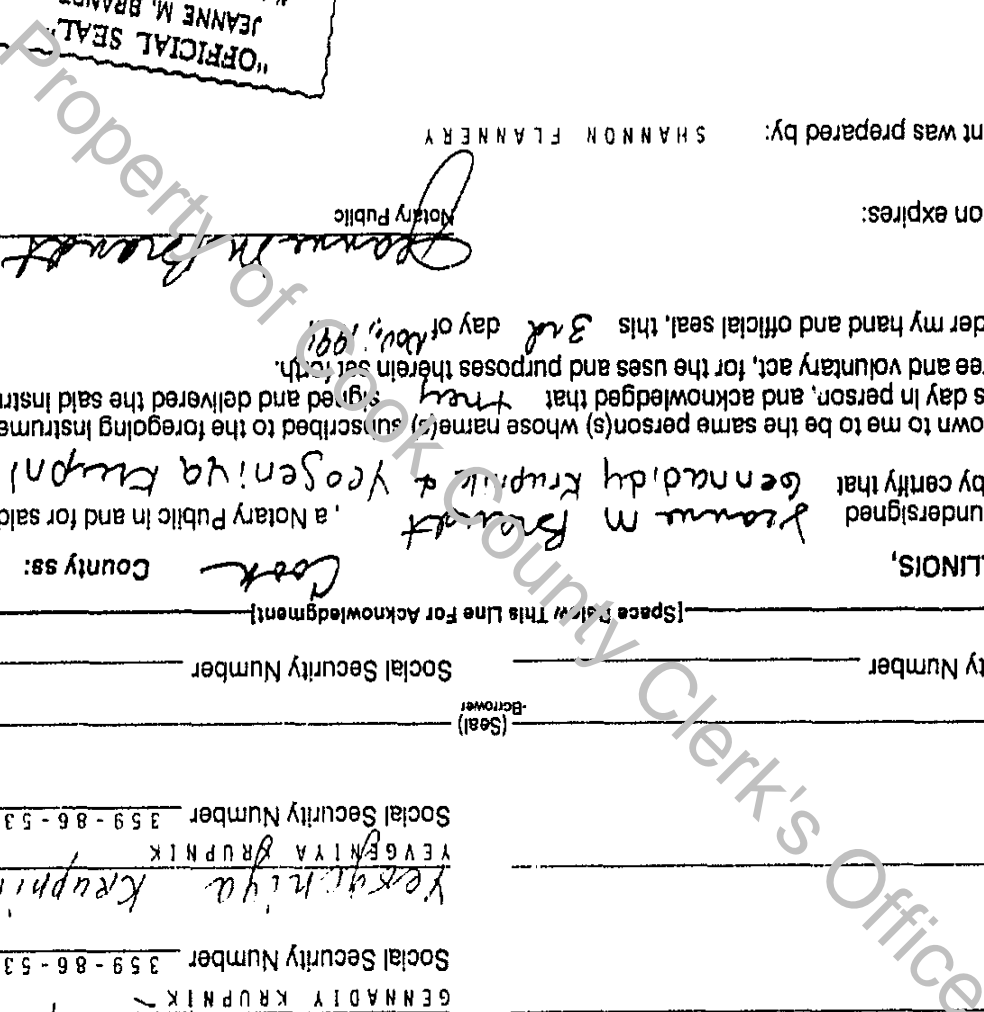 GENNADIY KRUPNIK
Social Security Number 359-86-53
Yevgeniya Krupni
YEVGENIYA KRUPNIK
Social Security Number 359-86-53
(Seal)
-Borrower
ty Number Social Security Number
[Space Below This Line For Acknowledgment]
LLINOIS, Cook County ss:
undersigned Jeanne M Brandt , a Notary Public in and for said
by certify that Gennadiy Krupnik & Yeogeniya Krupni
own to me to be the same person(s) whose name(s) subscribed to the foregoing instrume
s day in person, and acknowledged that they signed and delivered the said instru
ee and voluntary act, for the uses and purposes therein set forth.
der my hand and official seal, this 3rd day of Nov, 1991
Jeanne M Brandt
on expires: Notary Public
nt was prepared by: SHANNON FLANNERY
"OFFICIAL SEAL"
JEANNE M. BRANDT
Property of Cook County Clerk's Office